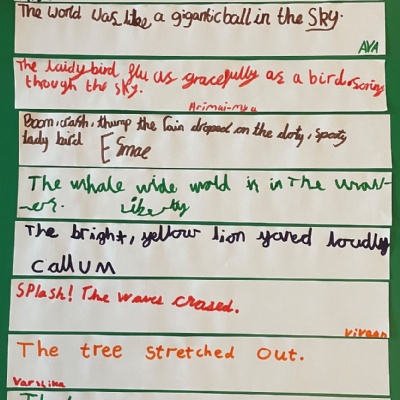 The world was like a gigantic ball in the sky.
AVA
The laidy bird flu as gracefully as a bird soring
though the sky.
Arimai-mya
Boom, crash, thump the rain droped on the doty, spoty
lady bird Esmae
The whale wide world is in The wran-
-ers.
The bright, yellow lion yared loudly
CallUM
SPlash! The waves crased.
Vivaan
The tree stretched out.
Varshika